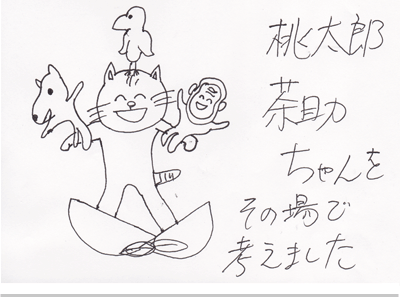 桃太郎
茶助
ちゃんを
その場で
考えました